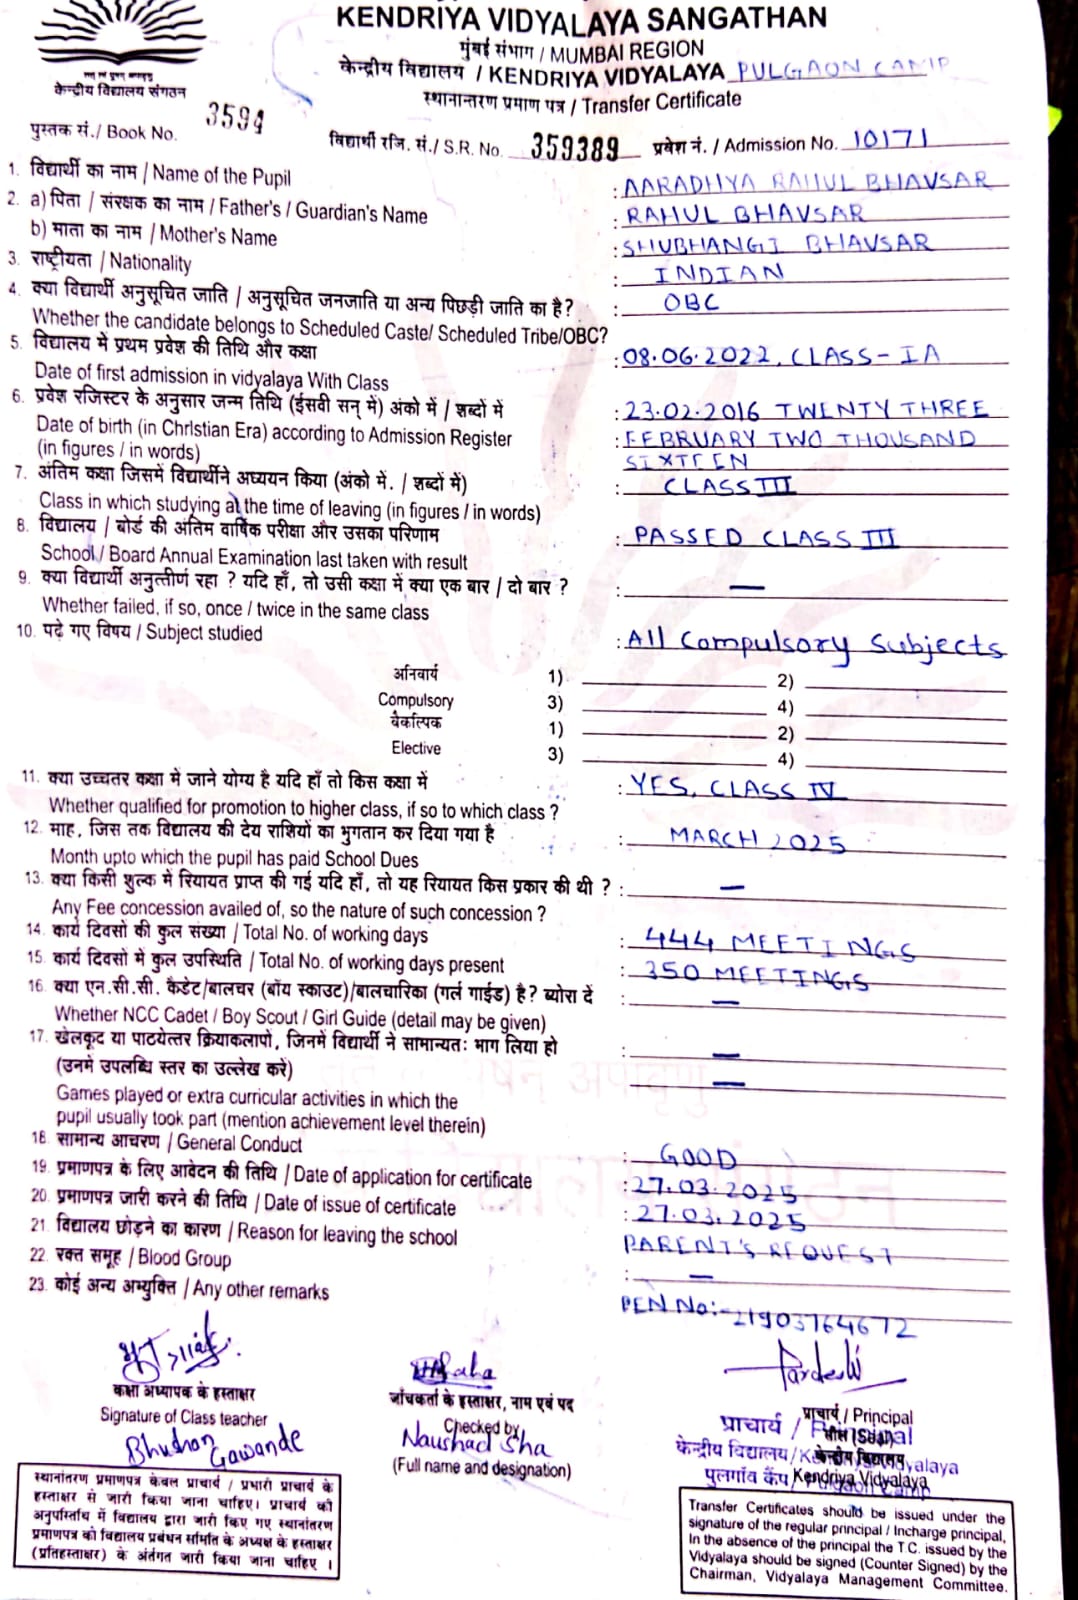 KENDRIYA VIDYALAYA SANGATHAN
मुंबई संभाग / MUMBAI REGION
केन्द्रीय विद्यालय / KENDRIYA VIDYALAYA PULGAON CAMP
केन्द्रीय विद्यालय संगठन
स्थानान्तरण प्रमाण पत्र / Transfer Certificate
पुस्तक सं./ Book No. 3594 विद्यार्थी रजि. सं./ S.R. No. 359389 प्रवेश नं. / Admission No. 10171
1. विद्यार्थी का नाम / Name of the Pupil : AARADHYA RAHUL BHAVSAR
2. a) पिता / संरक्षक का नाम / Father's / Guardian's Name : RAHUL BHAVSAR
b) माता का नाम / Mother's Name : SHUBHANGI BHAVSAR
3. राष्ट्रीयता / Nationality : INDIAN
4. क्या विद्यार्थी अनुसूचित जाति / अनुसूचित जनजाति या अन्य पिछड़ी जाति का है? : OBC
Whether the candidate belongs to Scheduled Caste/ Scheduled Tribe/OBC?
5. विद्यालय में प्रथम प्रवेश की तिथि और कक्षा : 08.06.2022, CLASS-IA
Date of first admission in vidyalaya With Class
6. प्रवेश रजिस्टर के अनुसार जन्म तिथि (ईसवी सन् में) अंको में / शब्दों में : 23.02.2016 TWENTY THREE
Date of birth (in Christian Era) according to Admission Register : FEBRUARY TWO THOUSAND
(in figures / in words) SIXTEEN
7. अंतिम कक्षा जिसमें विद्यार्थीने अध्ययन किया (अंको में. / शब्दों में) : CLASS III
Class in which studying at the time of leaving (in figures / in words)
8. विद्यालय / बोर्ड की अंतिम वार्षिक परीक्षा और उसका परिणाम : PASSED CLASS III
School / Board Annual Examination last taken with result
9. क्या विद्यार्थी अनुत्तीर्ण रहा ? यदि हाँ, तो उसी कक्षा में क्या एक बार / दो बार ? : —
Whether failed, if so, once / twice in the same class
10. पढ़े गए विषय / Subject studied : All Compulsory Subjects
अनिवार्य 1) 2)
Compulsory 3) 4)
वैकल्पिक 1) 2)
Elective 3) 4)
11. क्या उच्चतर कक्षा में जाने योग्य है यदि हाँ तो किस कक्षा में : YES, CLASS IV
Whether qualified for promotion to higher class, if so to which class ?
12. माह, जिस तक विद्यालय की देय राशियों का भुगतान कर दिया गया है : MARCH 2025
Month upto which the pupil has paid School Dues
13. क्या किसी शुल्क में रियायत प्राप्त की गई यदि हाँ, तो यह रियायत किस प्रकार की थी ? : —
Any Fee concession availed of, so the nature of such concession ?
14. कार्य दिवसो की कुल संख्या / Total No. of working days : 444 MEETINGS
15. कार्य दिवसो में कुल उपस्थिति / Total No. of working days present : 350 MEETINGS
16. क्या एन.सी.सी. कैडेट/बालचर (बॉय स्काउट)/बालचारिका (गर्ल गाईड) है? ब्योरा दें : —
Whether NCC Cadet / Boy Scout / Girl Guide (detail may be given)
17. खेलकूद या पाठयेत्तर क्रियाकलापो, जिनमें विद्यार्थी ने सामान्यतः भाग लिया हो : —
(उनमें उपलब्धि स्तर का उल्लेख करें) : —
Games played or extra curricular activities in which the
pupil usually took part (mention achievement level therein)
18. सामान्य आचरण / General Conduct : GOOD
19. प्रमाणपत्र के लिए आवेदन की तिथि / Date of application for certificate : 27.03.2025
20. प्रमाणपत्र जारी करने की तिथि / Date of issue of certificate : 27.03.2025
21. विद्यालय छोड़ने का कारण / Reason for leaving the school PARENT'S REQUEST
22. रक्त समूह / Blood Group : —
23. कोई अन्य अभ्युक्ति / Any other remarks PEN No:- 21903764672
कक्षा अध्यापक के हस्ताक्षर
Signature of Class teacher
Bhushan Gawande
जाँचकर्ता के हस्ताक्षर, नाम एवं पद
Checked by
Naushad Sha
(Full name and designation)
Pardeshi
प्राचार्य / Principal
प्राचार्य / Principal
केन्द्रीय विद्यालय/Kendriya Vidyalaya
पुलगाँव कैंप/ Pulgaon Camp
Kendriya Vidyalaya
स्थानांतरण प्रमाणपत्र केवल प्राचार्य / प्रभारी प्राचार्य के
हस्ताक्षर से जारी किया जाना चाहिए। प्राचार्य की
अनुपस्तिथि में विद्यालय द्वारा जारी किए गए स्थानांतरण
प्रमाणपत्र को विद्यालय प्रबंधन समिति के अध्यक्ष के हस्ताक्षर
(प्रतिहस्ताक्षर) के अंतर्गत जारी किया जाना चाहिए ।
Transfer Certificates should be issued under the
signature of the regular principal / Incharge principal,
In the absence of the principal the T.C. issued by the
Vidyalaya should be signed (Counter Signed) by the
Chairman, Vidyalaya Management Committee.